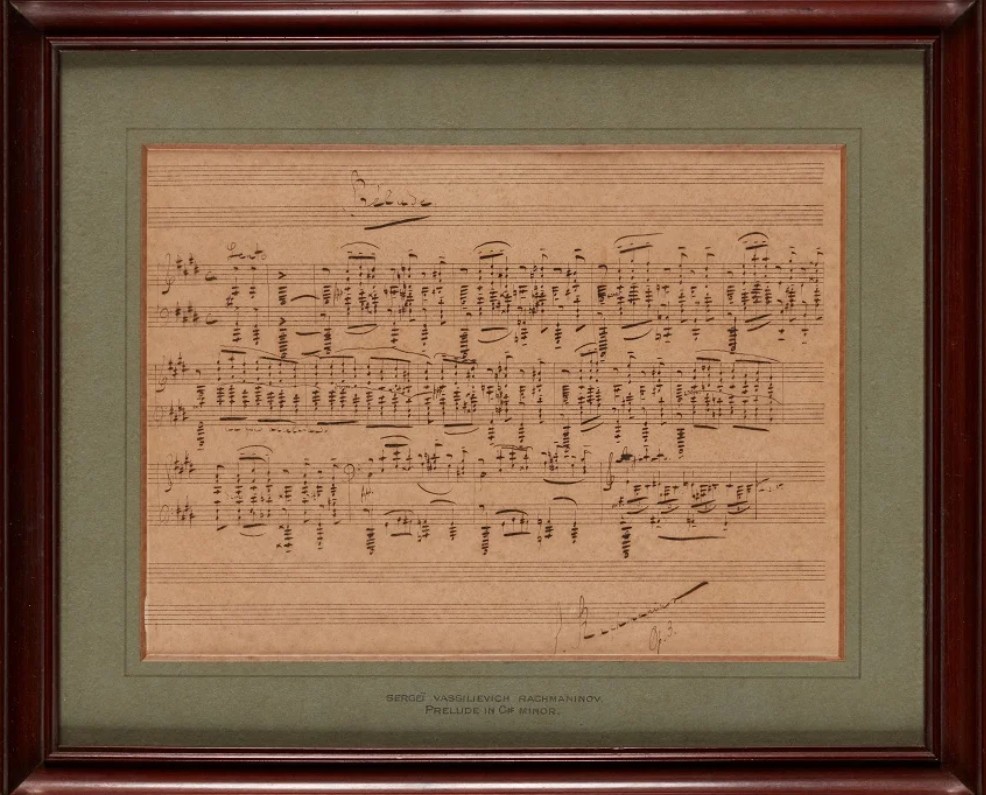 Prélude
Lento
Op. 3.
SERGEÏ VASSILIEVICH RACHMANINOV.
PRELUDE IN C# MINOR.